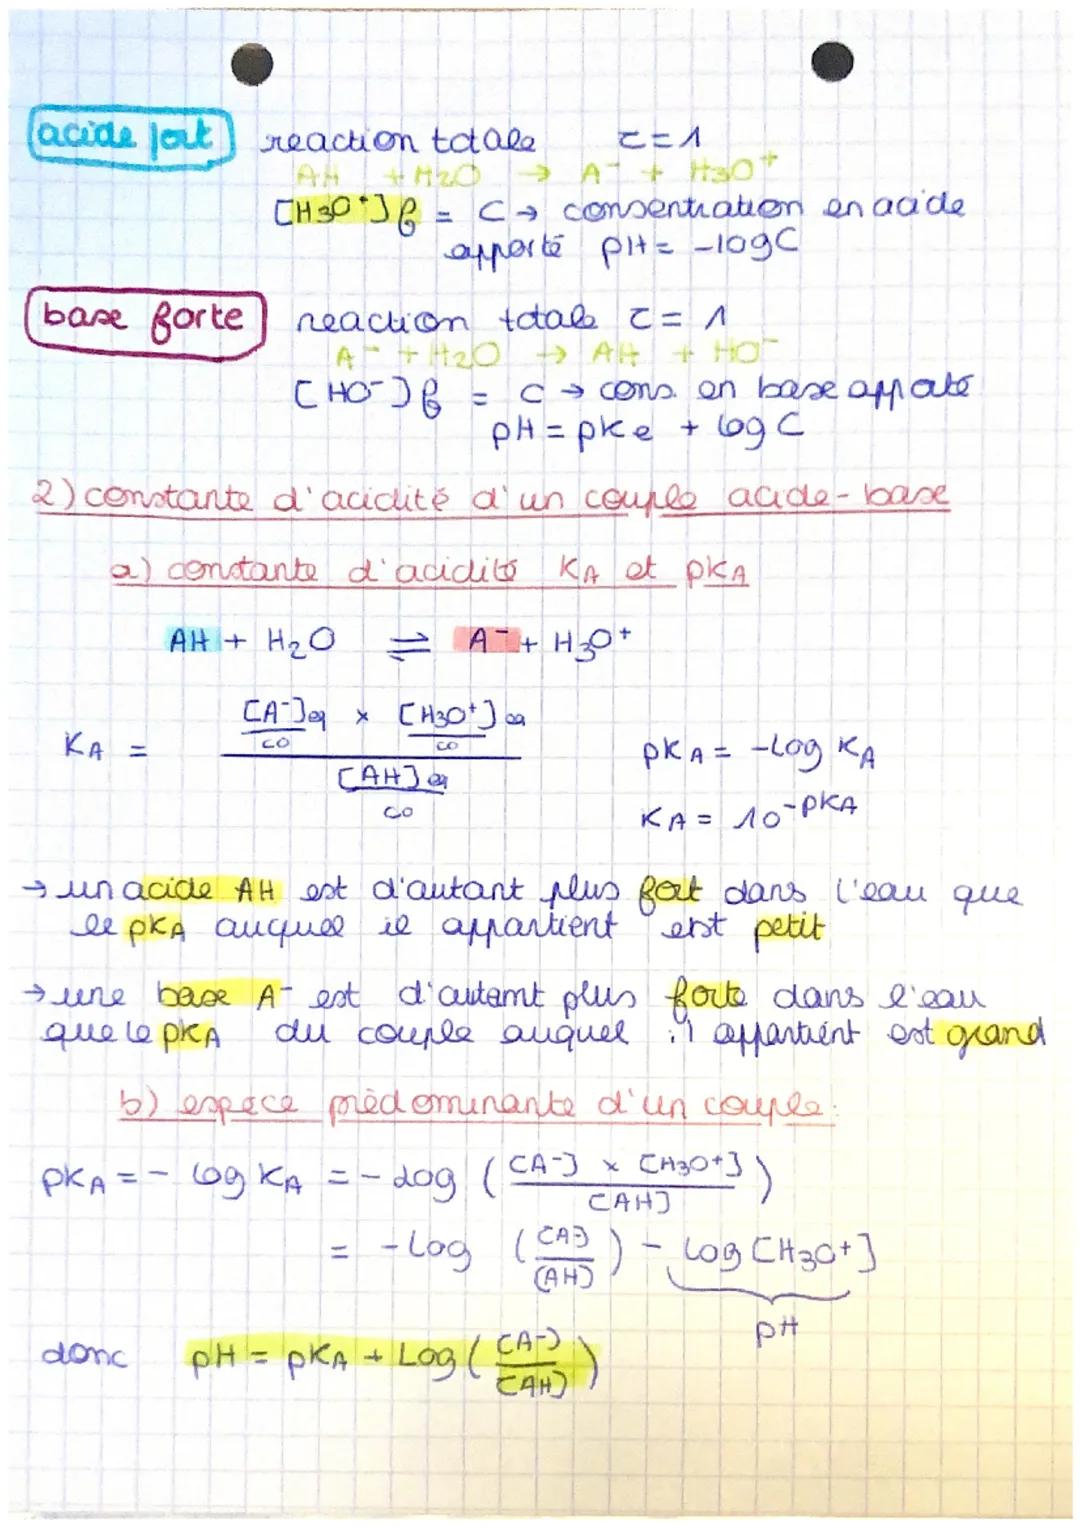 acide fort reaction totale τ = 1
AH + H2O → A⁻ + H3O⁺
[H3O⁺]f = C → consentration en acide
apporté pH = -logC
base forte reaction totale τ = 1
A⁻ + H2O → AH + HO⁻
[HO⁻]f = C → cons. en base apporté
pH = pKe + log C
2) constante d'acidité d'un couple acide-base
a) constante d'acidité KA et pKA
AH + H2O ⇌ A⁻ + H3O⁺
[A⁻]eq × [H3O⁺]eq
co co
KA = pKA = -Log KA
[AH]eq
co
KA = 10^-pKA
→ un acide AH est d'autant plus fort dans l'eau que
le pKA auquel il appartient est petit
→ une base A⁻ est d'autamt plus forte dans l'eau
que le pKA du couple auquel il appartient est grand
b) espèce prédominante d'un couple.
pKA = - log KA = - log ([A⁻] × [H3O⁺] / [AH])
= - Log ([A⁻] / [AH]) - Log [H3O+]
pH
donc pH = pKA + Log ([A⁻] / [AH])